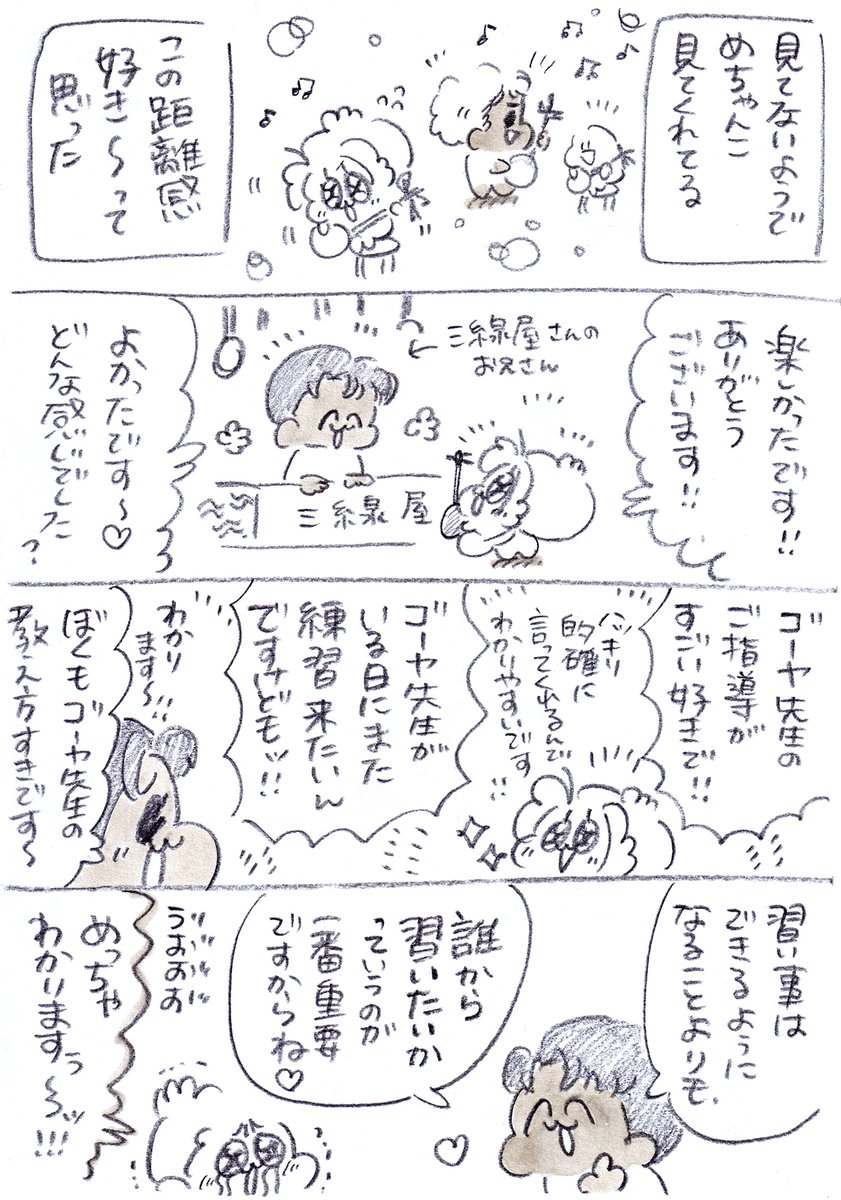 見てないようで
めちゃんこ
見てくれてる
この距離感
好き〜って
思った
楽しかったです!!
ありがとう
ございます!!
三線屋さんの
お兄さん
三線屋
よかったです〜♡
どんな感じでした?
ゴーヤ先生の
ご指導が
すごい好きで!!
ハッキリ
的確に
言ってくれるんで
わかりやすいです!!
ゴーヤ先生が
いる日にまた
練習来たいん
ですけどもッ!!
わかり
ます〜!!
ぼくもゴーヤ先生の
教え方すきです〜
習い事は
できるように
なることよりも、
誰から
習いたいか
っていうのが
一番重要
ですからね♡
うおおお
めっちゃ
わかりますぅ〜ッ!!!